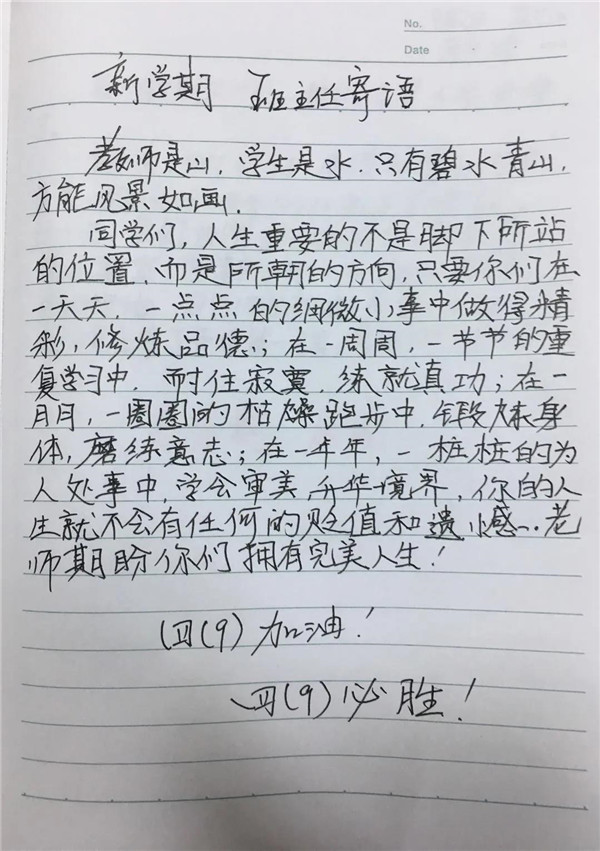 No.
Date
新学期 班主任寄语
教师是山，学生是水，只有碧水青山，
方能风景如画。
同学们，人生重要的不是脚下所站
的位置，而是所朝的方向，只要你们在
一天天，一点点的细微小事中做得精
彩，修炼品德；在一周周，一节节的重
复学习中，耐住寂寞，练就真功；在一
月月，一圈圈的枯燥跑步中，锻炼身
体，磨练意志；在一年年，一桩桩的为
人处事中，学会审美，升华境界，你的人
生就不会有任何的贬值和遗憾…老
师期盼你们拥有完美人生！
四(9)加油！
四(9)必胜！